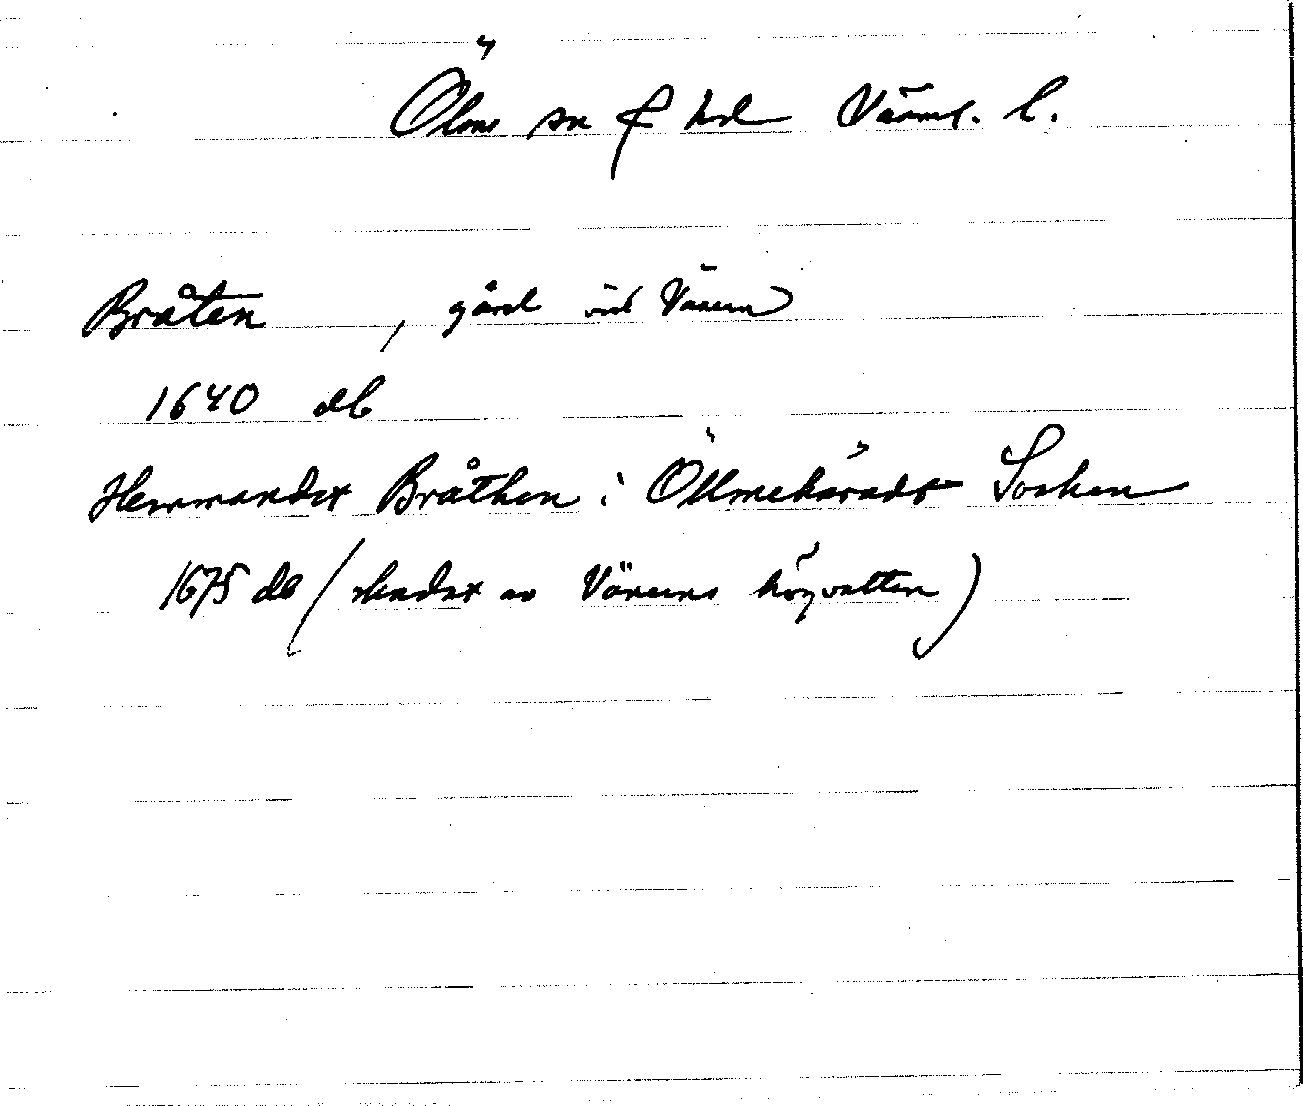 Ölme sn o hd Värml. l.
Bråten , gård vid Vänern
1640 db
Hemmandet Bråthen i Öllmehärads Socken
1675 db (skadat av Vänerns högvatten)